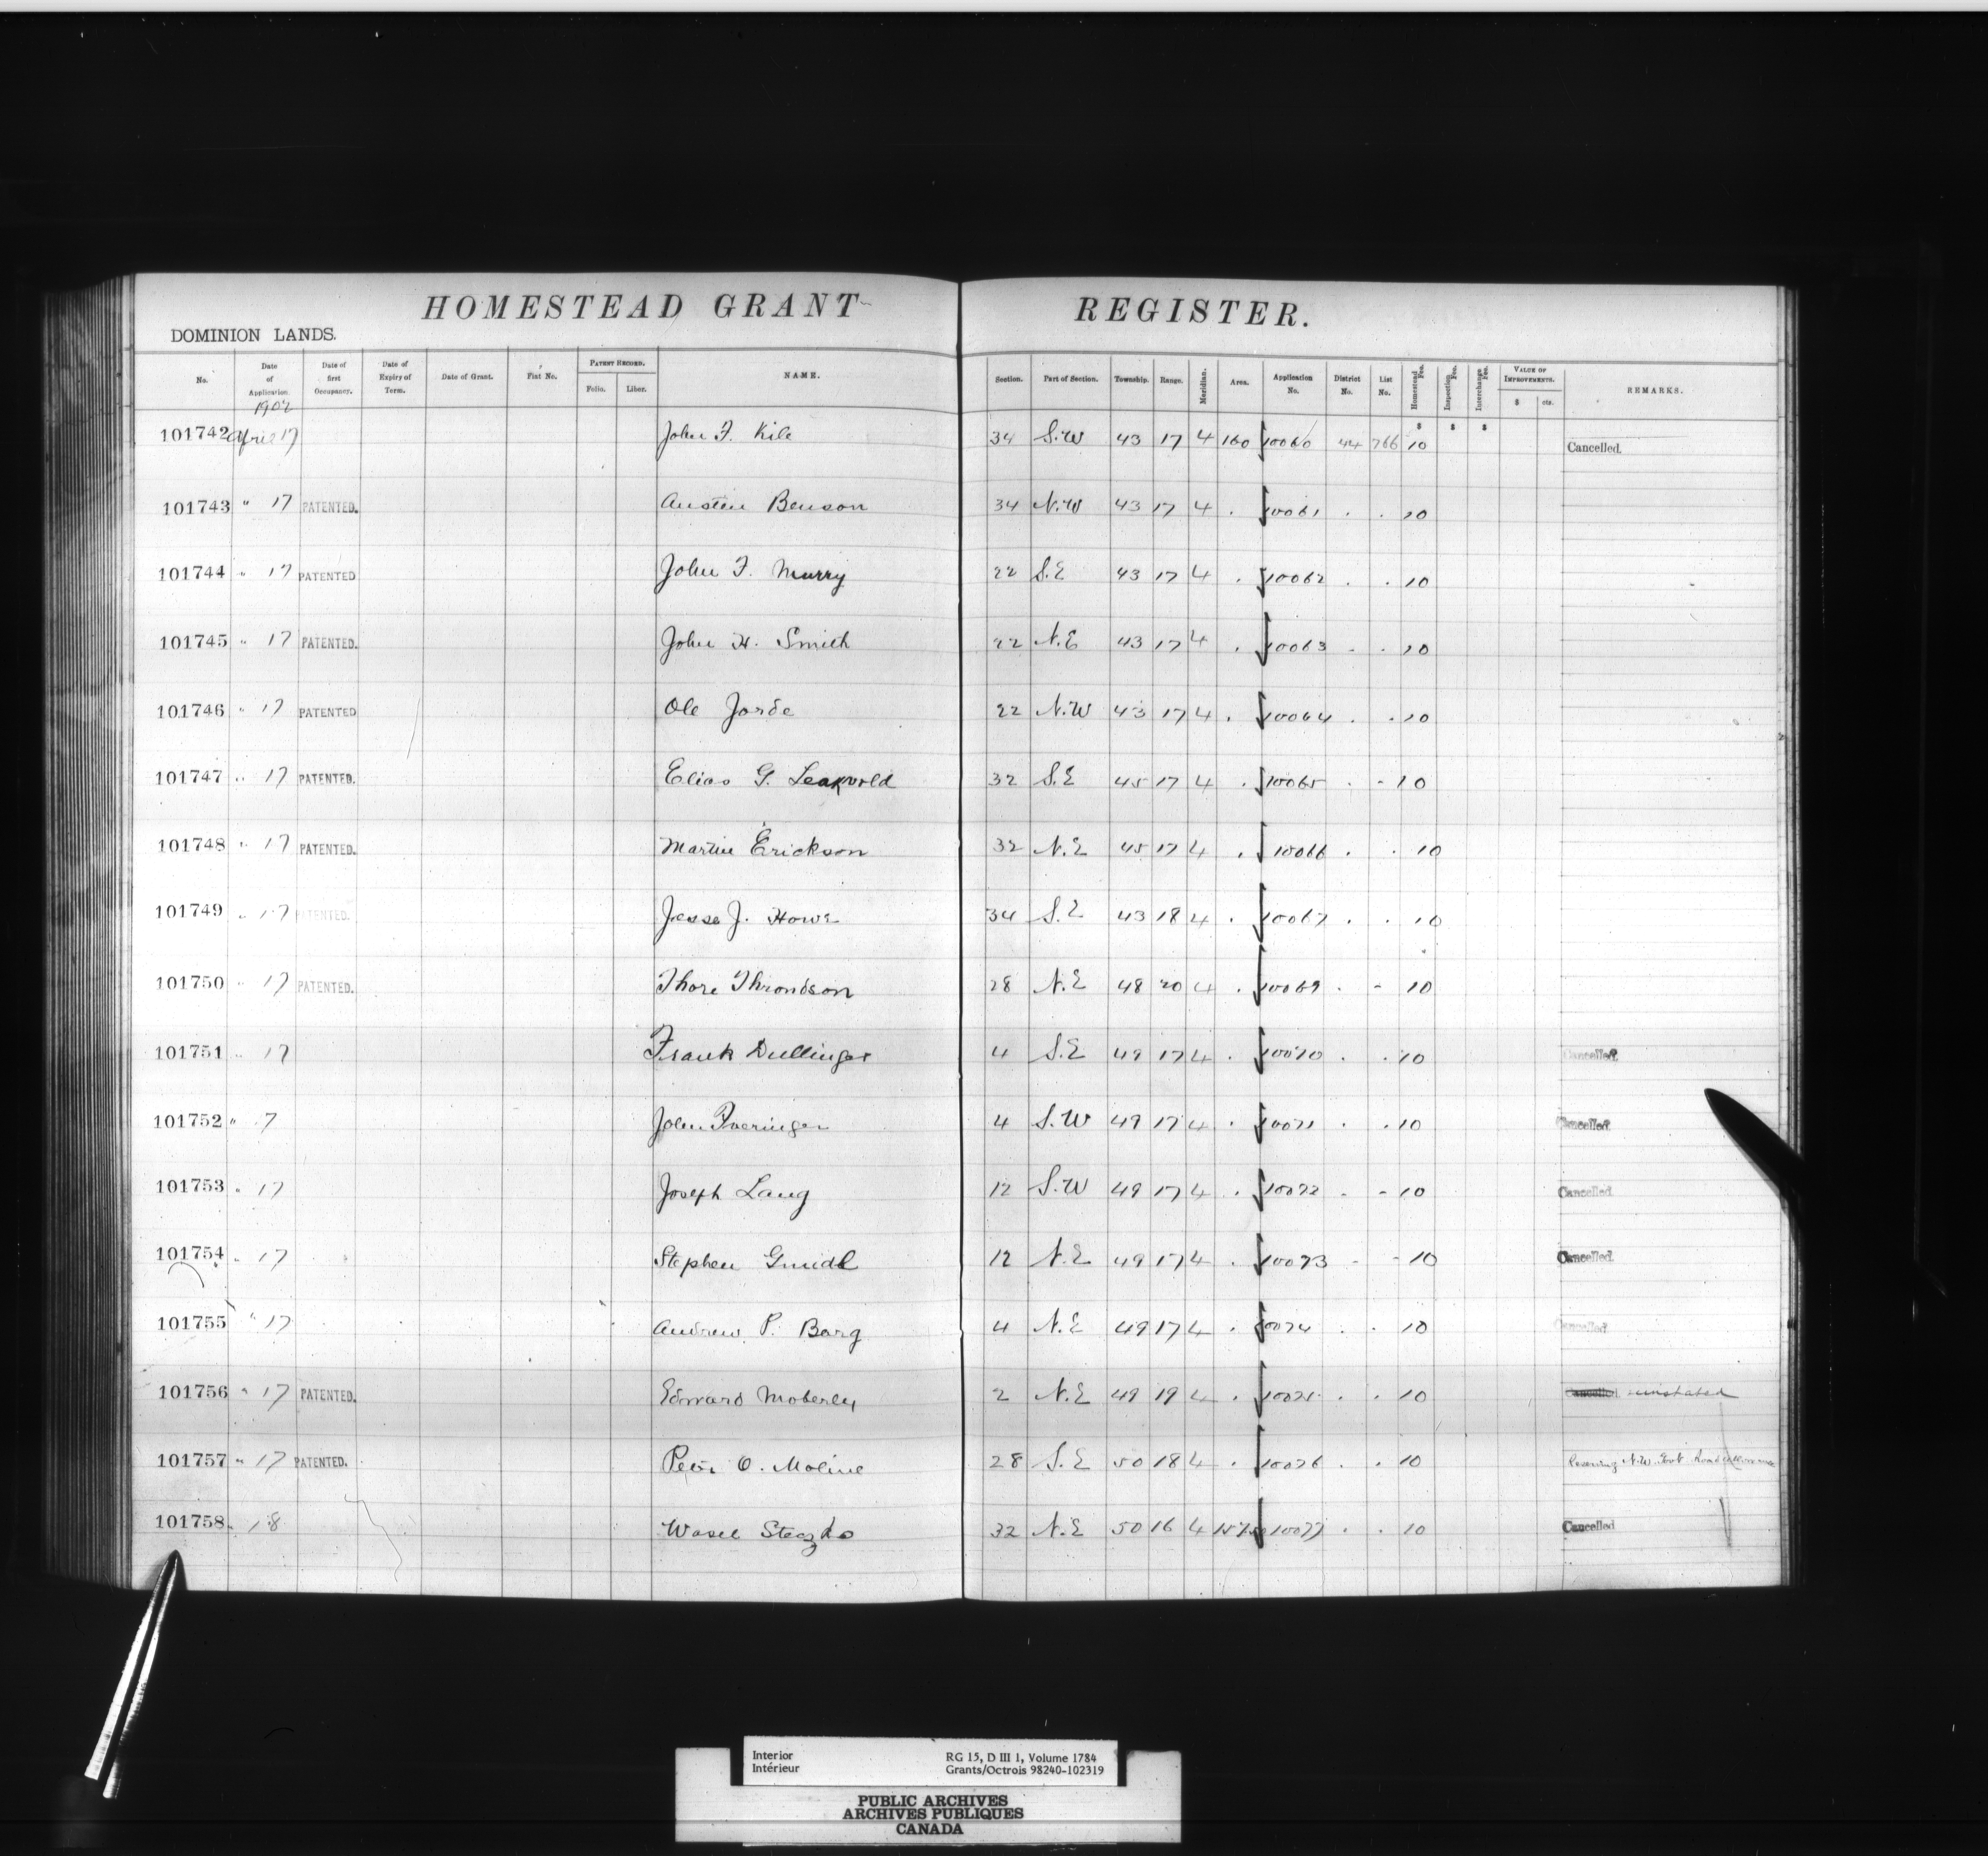 HOMESTEAD GRANT REGISTER.
DOMINION LANDS.
No. Date of Application. Date of first Occupancy. Date of Expiry of Term. Date of Grant. Fiat No. PATENT RECORD. Folio. Liber. NAME. Section. Part of Section. Township. Range. Meridian. Area. Application No. District No. List No. Homestead Fee. Inspection Fee. Interchange Fee. VALUE OF IMPROVEMENTS. $ cts. REMARKS.
1902 $ $ $
101742 April 17 John F. Kile 34 S.W 43 17 4 160 10060 44 766 10 Cancelled.
101743 " 17 PATENTED. Austin Benson 34 N.W 43 17 4 . 10061 . . 10
101744 " 17 PATENTED John F. Murry 22 S.E 43 17 4 . 10062 . . 10
101745 " 17 PATENTED. John H. Smith 22 N.E 43 17 4 . 10063 . . 10
101746 " 17 PATENTED Ole Jorde 22 N.W 43 17 4 . 10064 . . 10
101747 " 17 PATENTED. Elias G. Leakvold 32 S.E 45 17 4 . 10065 . - 10
101748 " 17 PATENTED. Martin Erickson 32 N.E 45 17 4 . 10066 . . 10
101749 " 17 PATENTED. Jesse J. Howe 34 S.E 43 18 4 . 10067 . . 10
101750 " 17 PATENTED. Thore Throndson 28 N.E 48 20 4 . 10069 . - 10
101751 " 17 Frank Dullinger 4 S.E 49 17 4 . 10070 . . 10 Cancelled.
101752 " 17 John 4 S.W 49 17 4 . 10071 . . 10 Cancelled.
101753 " 17 Joseph Lang 12 S.W 49 17 4 . 10072 - - 10 Cancelled.
101754 " 17 Stephen Gmidl 12 N.E 49 17 4 . 10073 - - 10 Cancelled.
101755 " 17 Andrew P. Borg 4 N.E 49 17 4 . 10074 . . 10 Cancelled
101756 " 17 PATENTED. Edward Moberly 2 N.E 49 19 4 . 10075 . . 10 Cancelled. reinstated
101757 " 17 PATENTED. Peter O. Moline 28 S.E 50 18 4 . 10076 . . 10 Reserving N.W. Govt Road allowance
101758 " 18 Wasel 32 N.E 50 16 4 10077 . . 10 Cancelled
Interior RG 15, D III 1, Volume 1784
Intérieur Grants/Octrois 98240-102319
PUBLIC ARCHIVES
ARCHIVES PUBLIQUES
CANADA